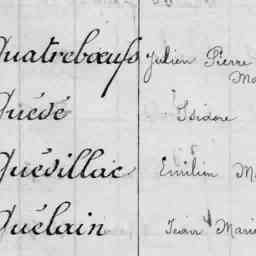 Quatrebœufs Julien Pierre
Quédé Isidore
Quévillac Emilien
Quélain Jean Marie